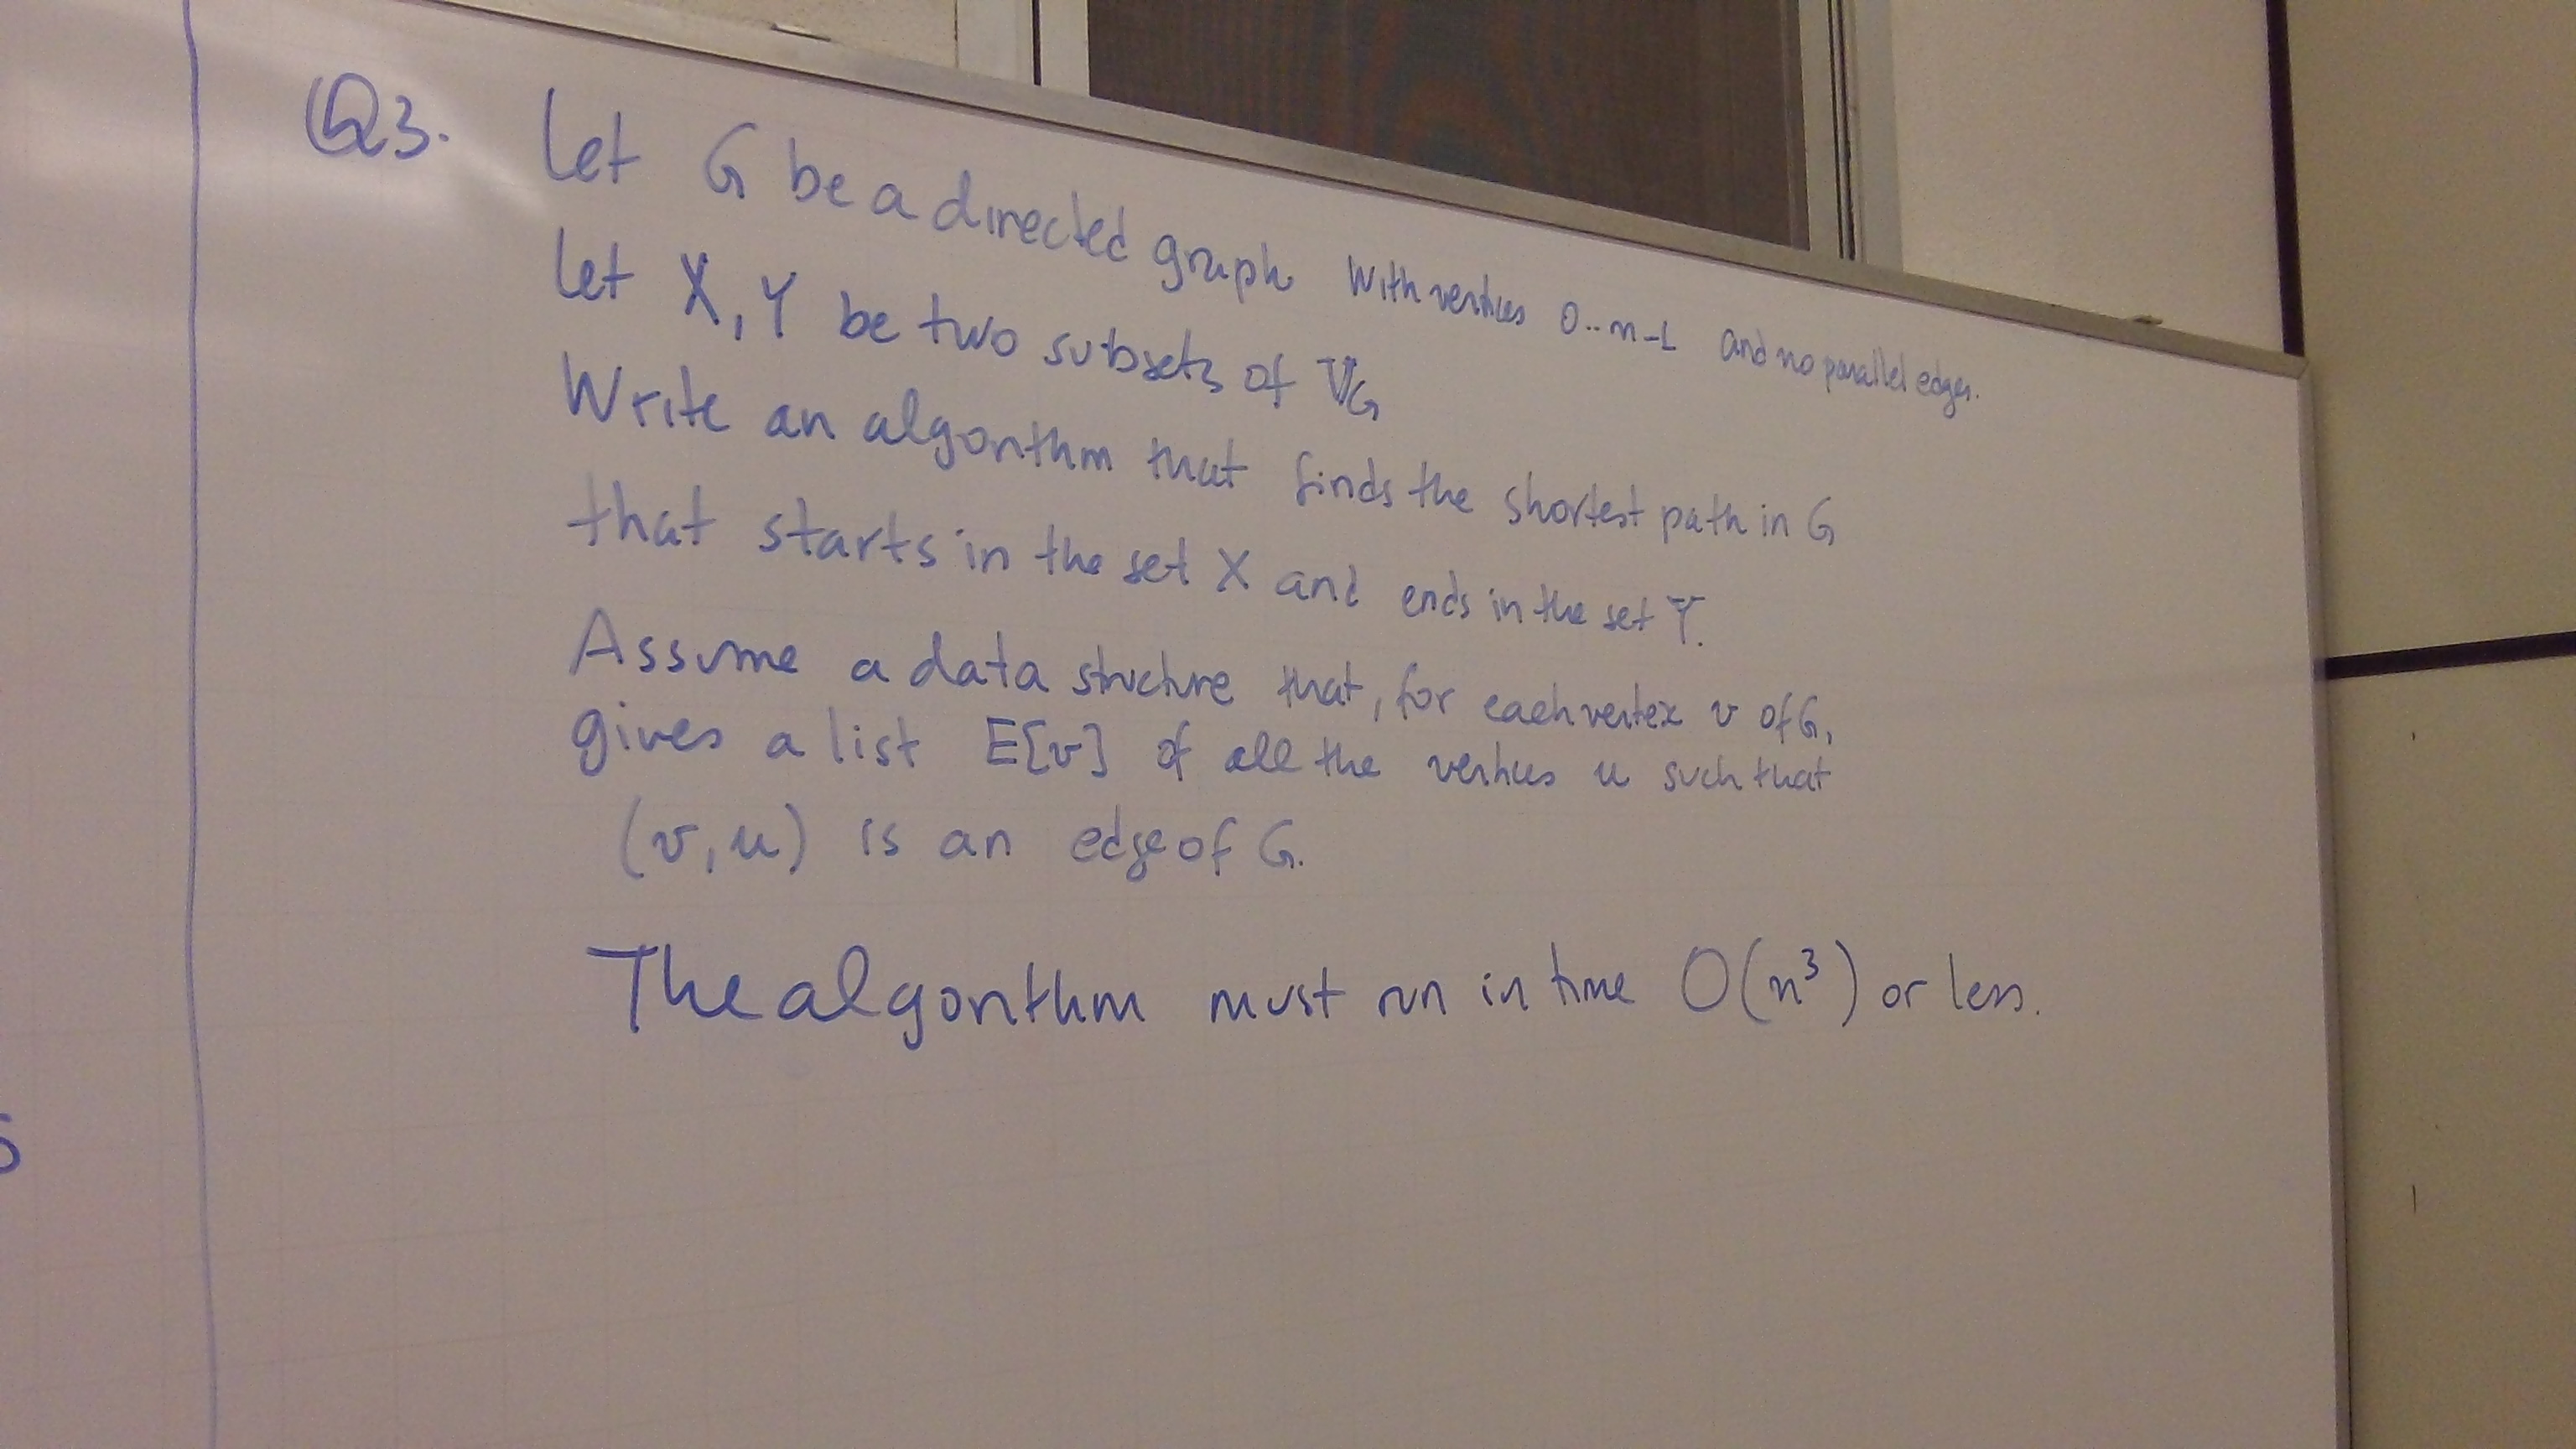 Q3. Let G be a directed graph with vertices 0..n-1 and no parallel edges.
Let X, Y be two subsets of V_G
Write an algorithm that finds the shortest path in G
that starts in the set X and ends in the set Y.
Assume a data structure that, for each vertex v of G,
gives a list E[v] of all the vertices u such that
(v, u) is an edge of G.
The algorithm must run in time O(n³) or less.